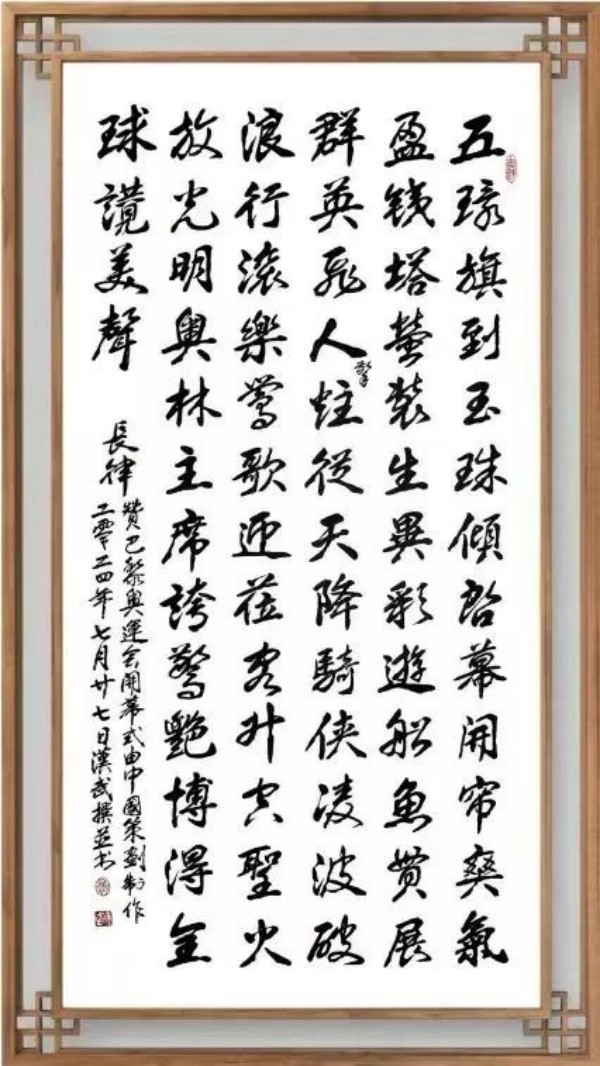 五環旗到玉珠傾啟幕開帘爽氣
盈鉄塔螢裝生異彩遊船魚貫展
群英飛人擎炷從天降騎俠凌波破
浪行滾樂鶯歌迎蒞客升空聖火
放光明奧林主席誇驚艷博得全
球讚美聲
長律
贊巴黎奧運会開幕式由中國策劃制作
二零二四年七月廿七日漢武撰並书